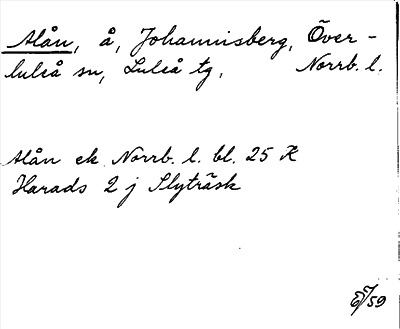 Alån, å, Johannisberg, Över-
luleå sn, Luleå tg, Norrb. l.
Alån ek Norrb. l. bl. 25 K
Harads 2 j Slyträsk
/59